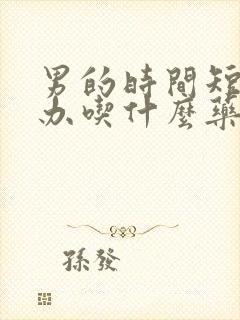 男的時間短
办喫什麼藥
孫發